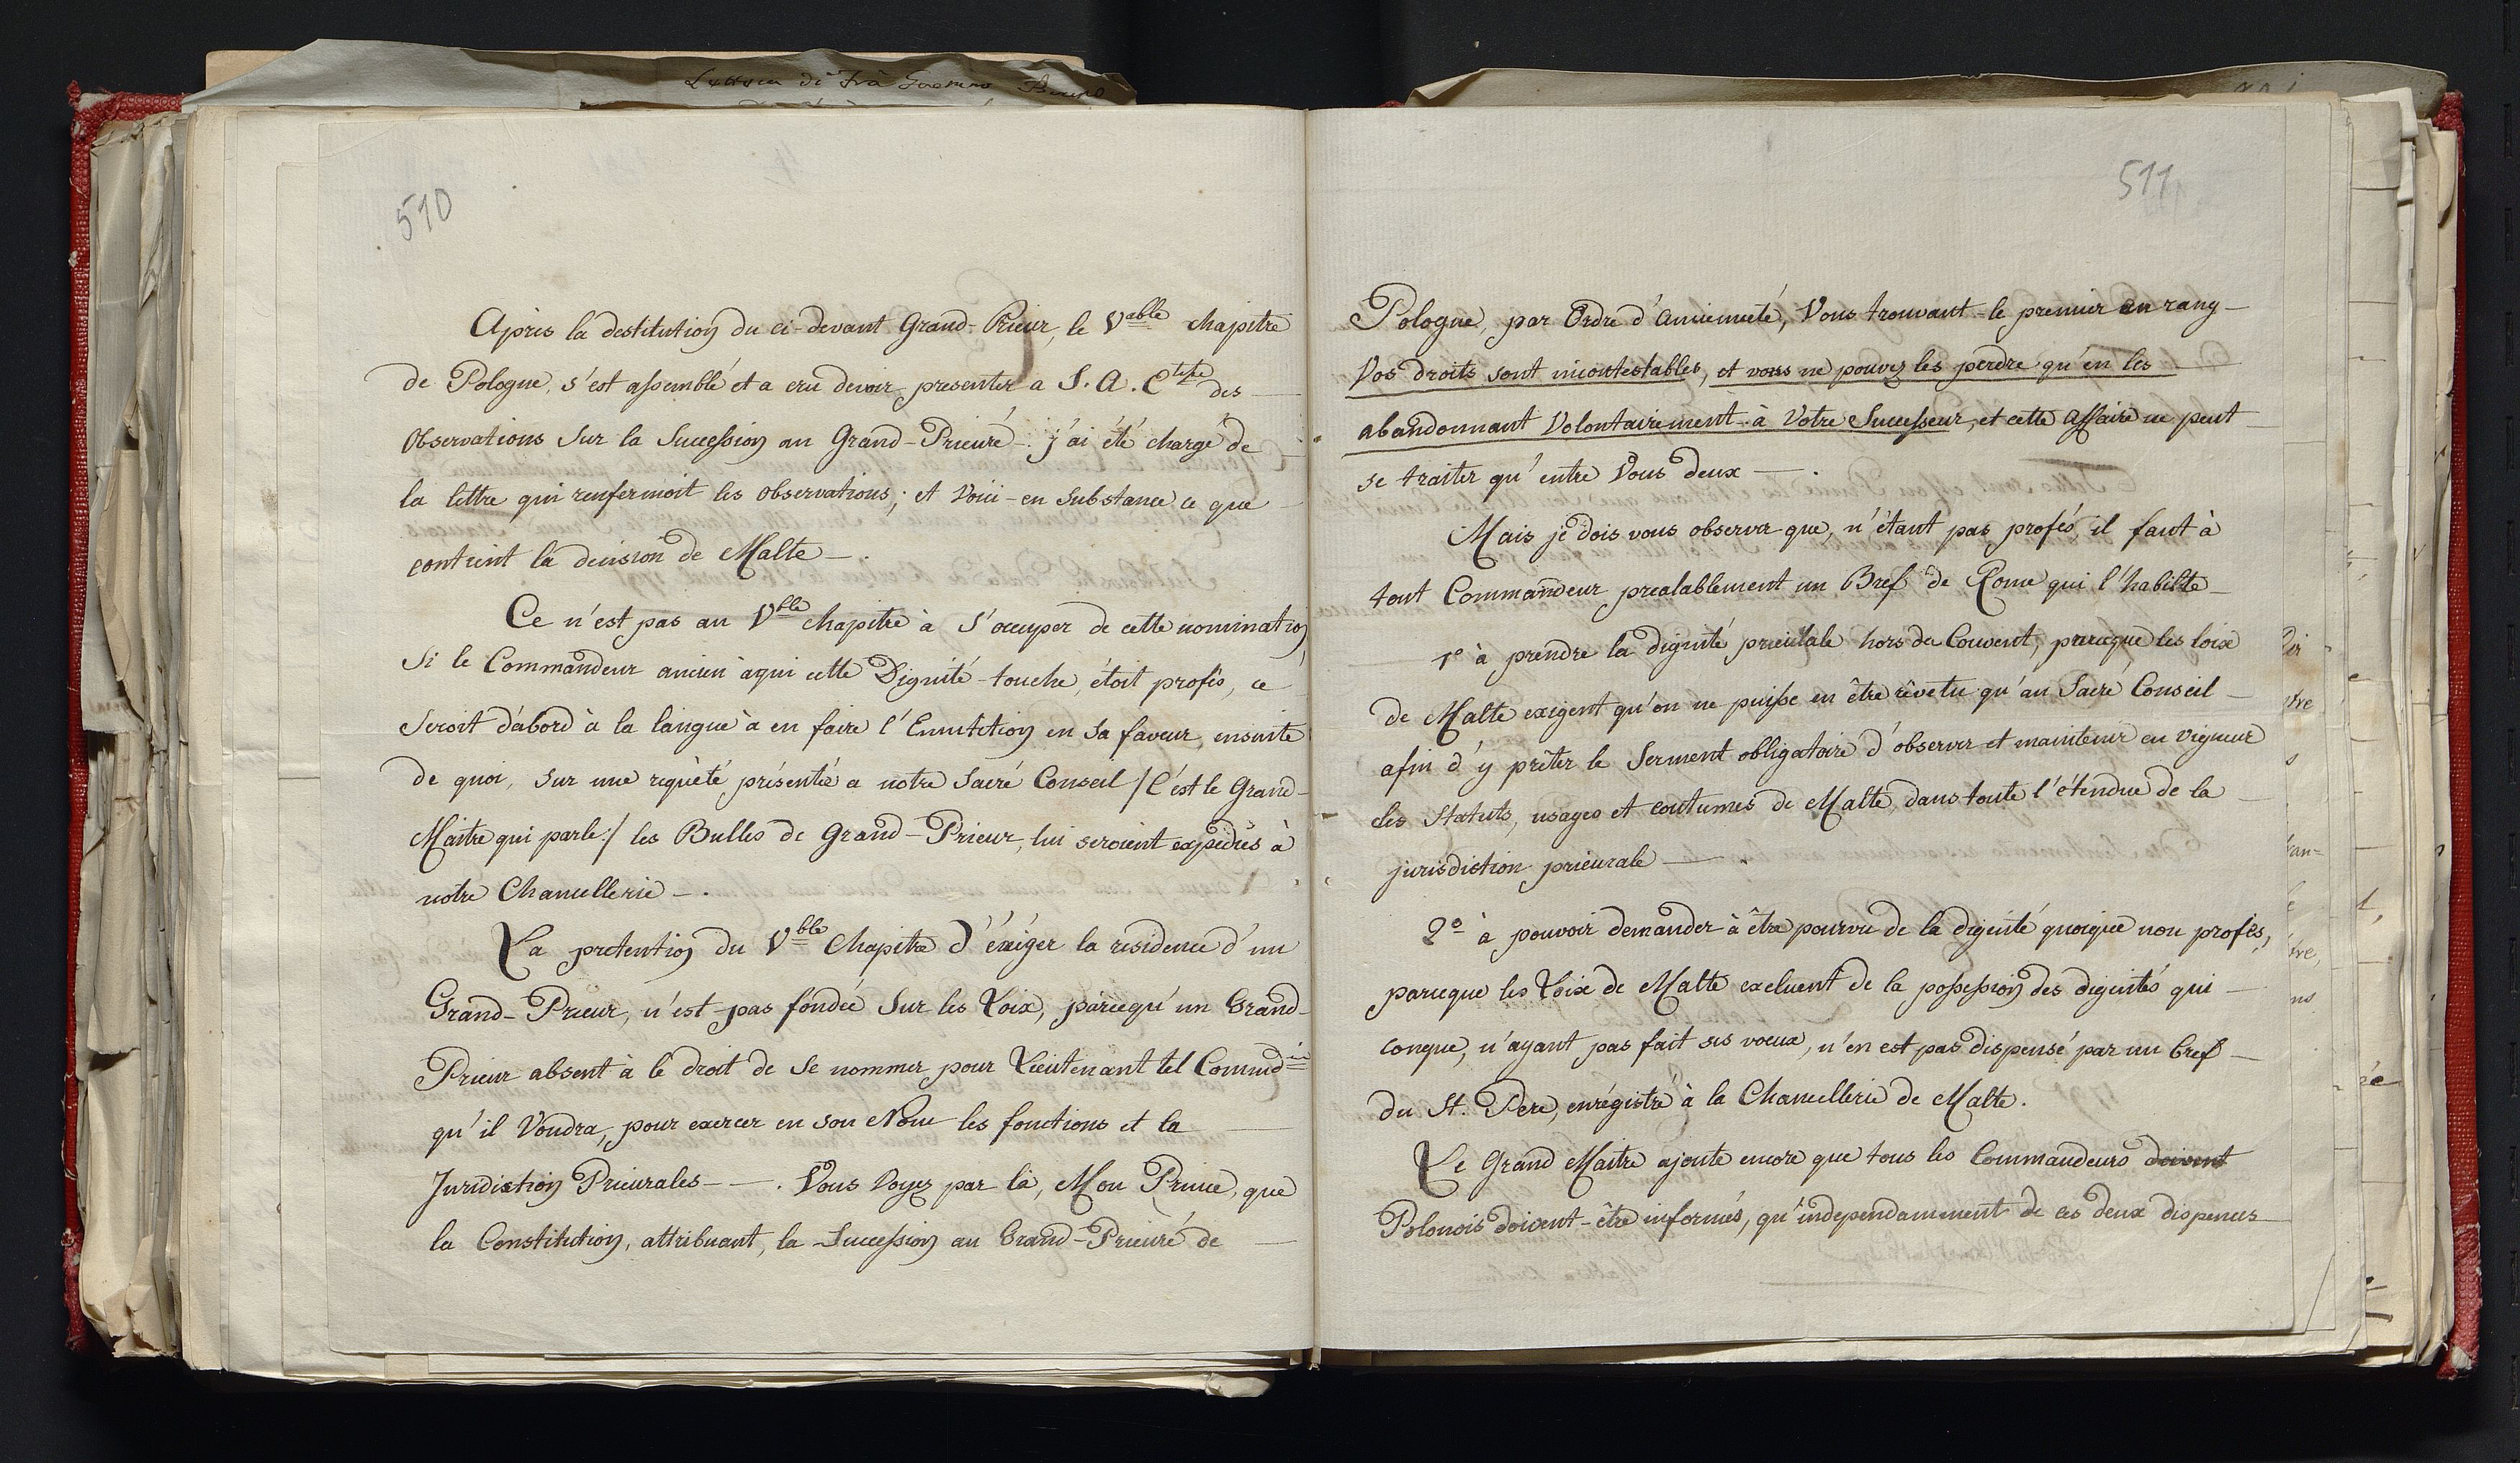 510
Après la destitution du ci-devant Grand-Prieur, le Vable chapitre
de Pologne, s'est assemblé et a crû devoir presenter a S. A. des
Observations sur la Succession au Grand-Prieuré. j'ai été chargé de
la lettre qui renfermoit les observations; et voici-en substance ce que
contient la decision de Malte —.
Ce n'est pas au Vble chapitre à s'occuper de cette nomination
Si le Commandeur ancien à qui cette Dignité touche, étoit profès, ce
seroit d'abord à la langue à en faire l'Emutition en sa faveur, ensuite
de quoi, sur une requête présentée a notre Sacré Conseil /C'est le Grand-
Maitre qui parle:/ les Bulles de Grand-Prieur, lui seroient expediés à
notre Chancellerie —.
La pretention du Vble Chapitre d'éxiger la residence d'un
Grand-Prieur, n'est pas fondée sur les Loix, parcequ'un Grand-
Prieur absent à le droit de se nommer pour Lieutenant tel Commdr
qu'il Voudra, pour exercer en son Nom les fonctions et la
Juridiction Prieurales — —. Vous Voyez par là, Mon Prince, que
la Constitution, attribuant, la Succession au Grand-Prieuré de
511
Pologne, par Ordre d'ancienneté, Vous trouvant-le premier en rang —
Vos droits sont incontestables, et vous ne pouvez les perdre qu'en les
abandonnant Volontairement à Votre Successeur, et cette affaire ne peut
se traiter qu'entre Vous deux —.
Mais je dois vous observer que, n'étant pas profés, il faut à
tout Commandeur prealablement un Bref de Rome qui l'habilte
1o à prendre la dignité prieurale hors du Couvent, parceque les loix
de Malte exigent qu'on ne puisse en être rêvetu qu'au Sacré Conseil —
afin d'y prêter le Serment obligatoire d'observer et maintenir en vigueur
les Statuts, usages et coutumes de Malte, dans toute l'étendue de la
jurisdiction prieurale —.
2o à pouvoir demander à être pourvu de la dignité quoique non profés,
parceque les Loix de Malte excluent de la possession des dignités qui —
conque, n'ayant pas fait ses voeux, n'en est pas dispensé par un bref —
du St. Pere, enrégistré à la Chancellerie de Malte.
Le Grand Maitre ajoute encore que tous les Commandeurs doivent
Polonois doivent-être informés, qu'independamment de ces deux dispenses